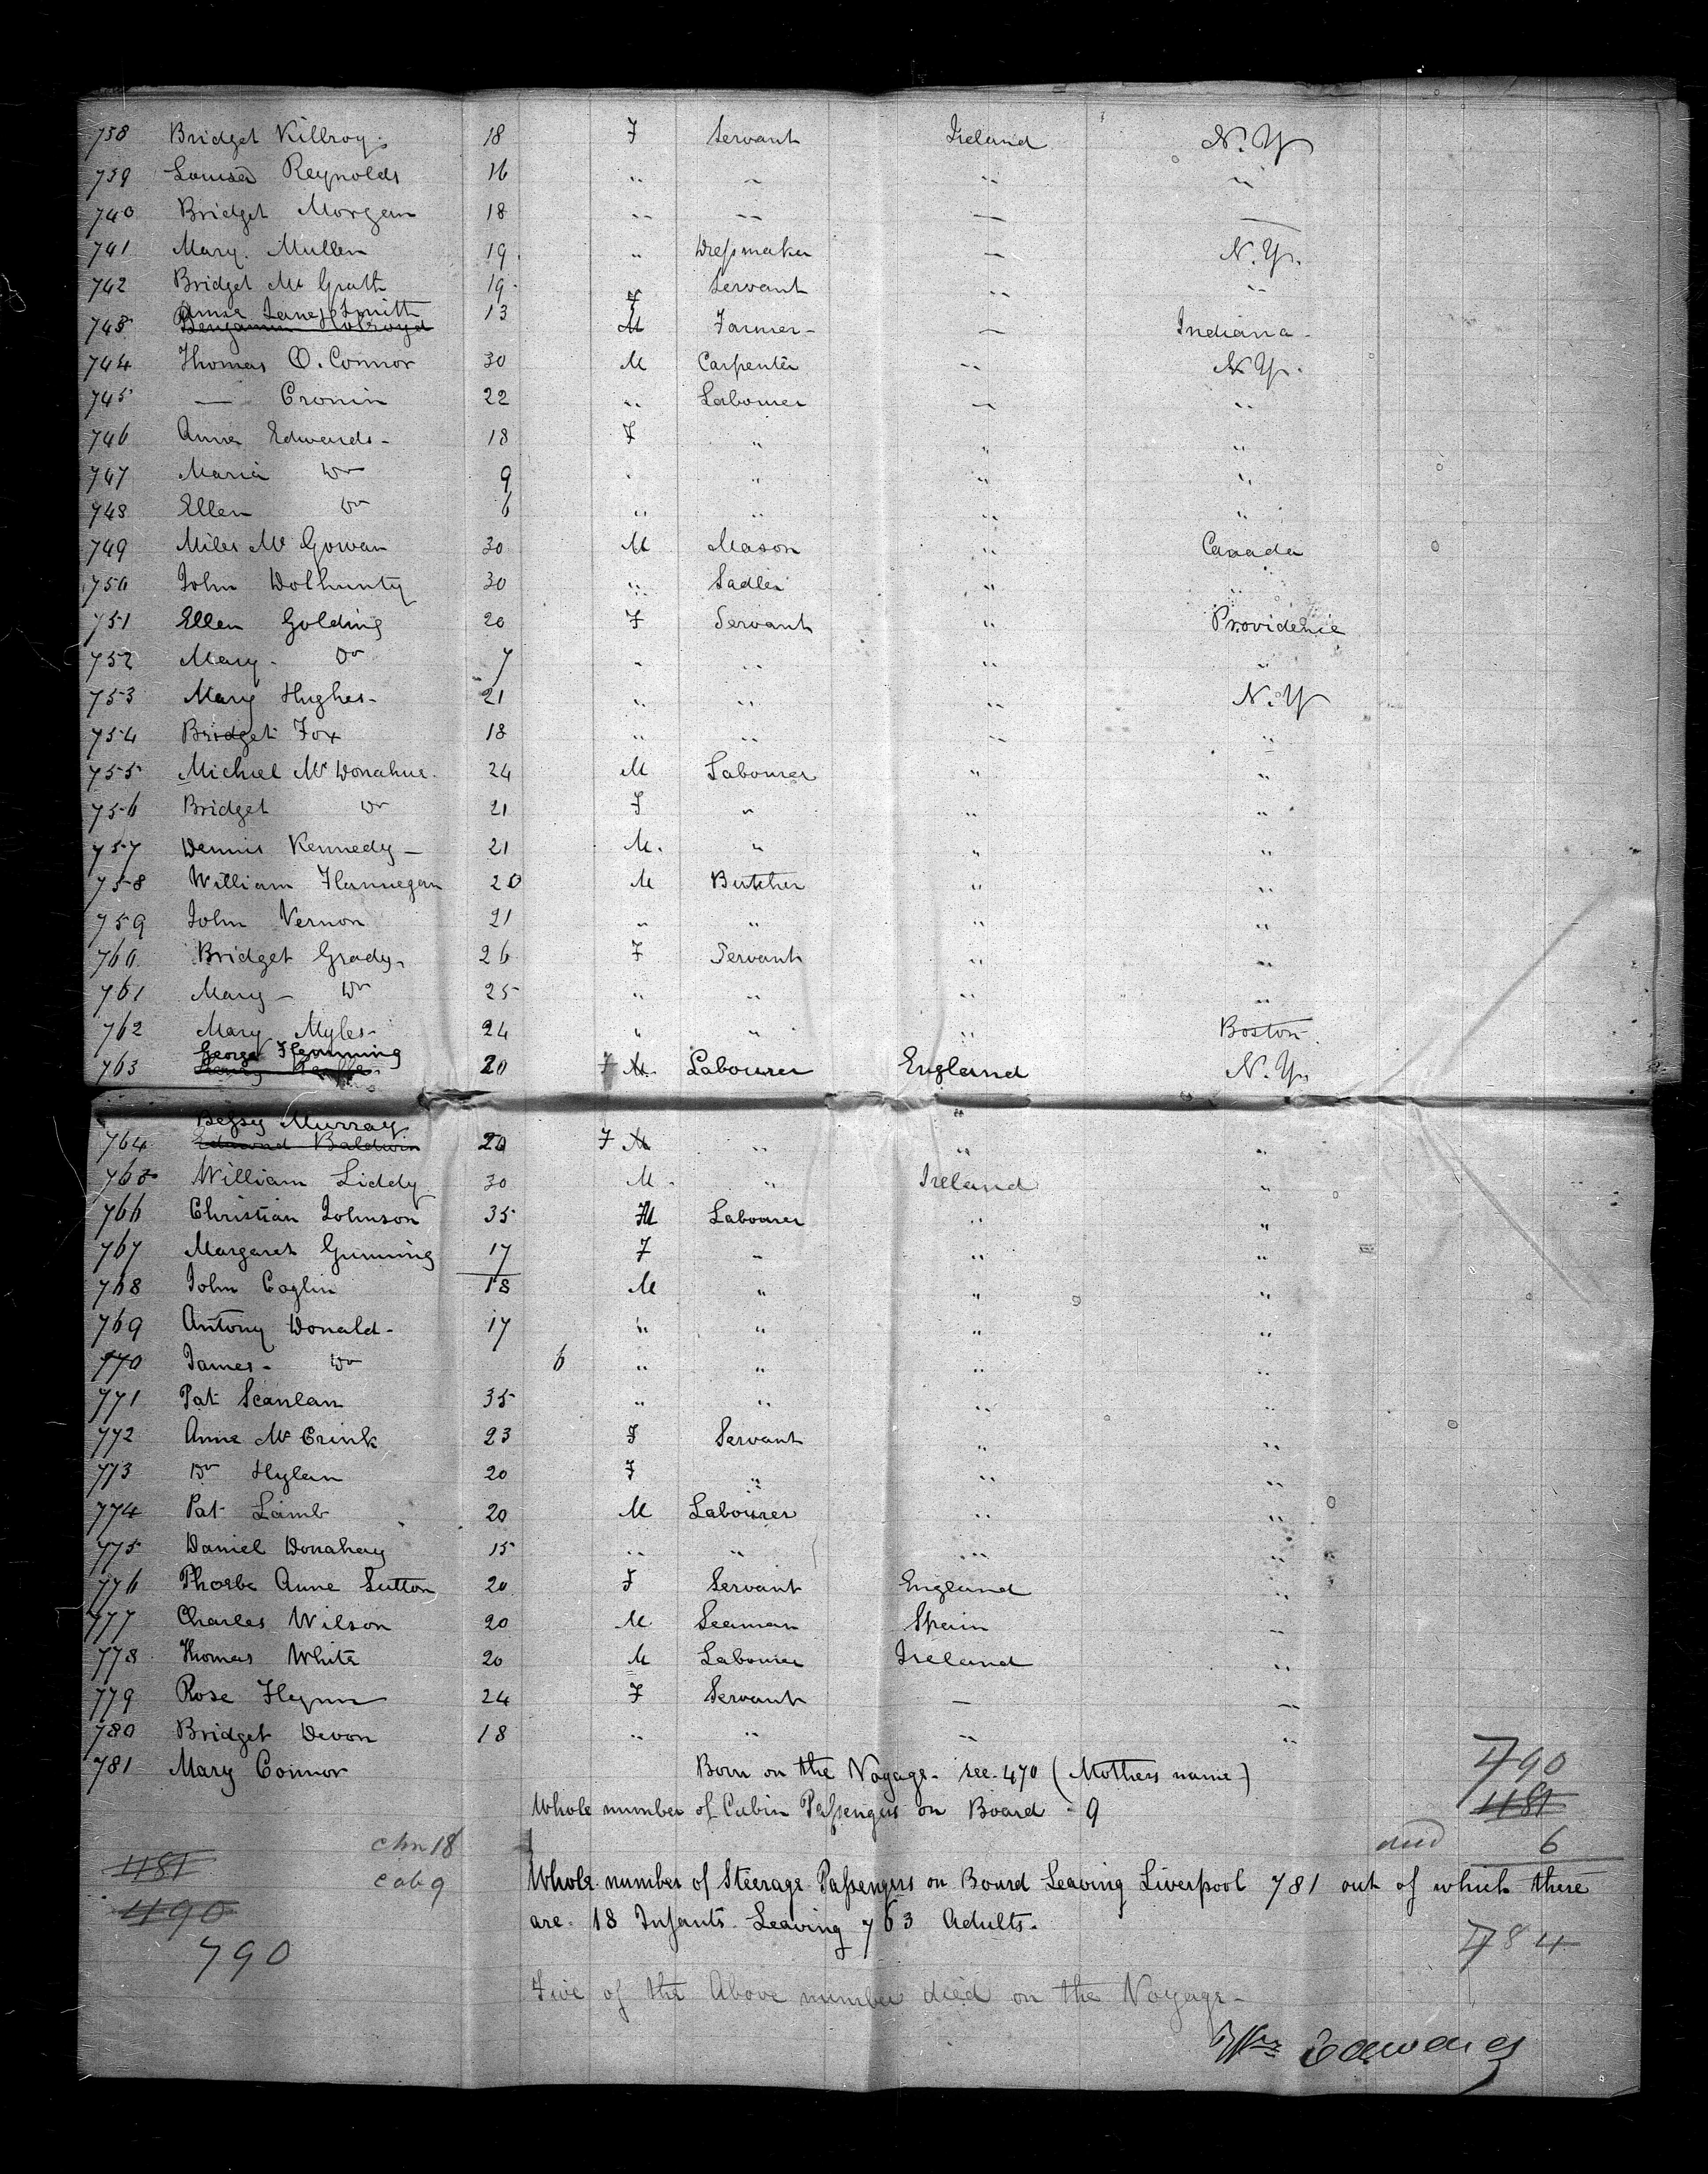 738 Bridget Killroy 18 F Servant Ireland N. Y
739 Louisa Reynolds 16 " " " "
740 Bridget Morgan 18 " " — —
741 Mary. Mullen 19. " Dressmaker — N. Y.
742 Bridget Mc Grath 19. " Servant " "
Anne Jane Smith 13 F
743 Benjamin Holroyd M Farmer — Indiana
744 Thomas O. Connor 30 M Carpenter " N. Y.
745 — Cronin 22 " Labourer — "
746 Anne Edwards 18 F " " "
747 Maria Do 9 " " " "
748 Ellen Do 6 " " " "
749 Miles Mc Gowan 30 M Mason " Canada
750 John Wolhunty 30 " Sadler " "
751 Ellen Golding 20 F Servant " Providence
752 Mary - Do 7 " " " "
753 Mary Hughes - 21 " " " N. Y
754 Bridget Fox 18 " " " "
755 Michael Mc Donahue. 24 M Labourer " "
756 Bridget Do 21 F " " "
757 Dennis Kennedy — 21 M. " " "
758 William Flannegan 20 M Butcher " "
759 John Vernon 21 " " " "
760 Bridget Grady 26 F Servant " "
761 Mary — Do 25 " " " "
762 Mary Myles - 24 " " " Boston.
George Flemming
763 20 F M. Labourer England N. Y.
Betsy Murray "
764 Edmond Baldwin 20 F M " " "
765 William Liddy 30 M. " Ireland "
766 Christian Johnson 35 M Labourer " "
767 Margaret Gunning 17 F " " "
768 John Coglin 18 M " " "
769 Antony Donald - 17 " " " "
770 James - Do 6 " " " "
771 Pat Scanlan 35 " " " "
772 Anne Mc Crink 23 F Servant " "
773 Do Hylan 20 F " " "
774 Pat Lamb 20 M Labourer " "
775 Daniel Donahay 15 " " " "
776 Phoebe Anne Sutton 20 F Servant England "
777 Charles Wilson 20 M. Seaman Spain "
778 Thomas White 20 M Labourer Ireland "
779 Rose Flynn 24 F Servant — —
780 Bridget Devon 18 " " " "
781 Mary Connor Born on the Voyage - see. 470 (Mothers name)
790
Whole number of Cabin Passengers on Board - 9
481
chn 18 died 6
481 cab 9
Whole number of Steerage Passengers on Board Leaving Liverpool 781 out of which there
490
are. 18 Infants. Leaving 763 Adults.
784
790
Five of the Above number died on the Voyage -
Edwards